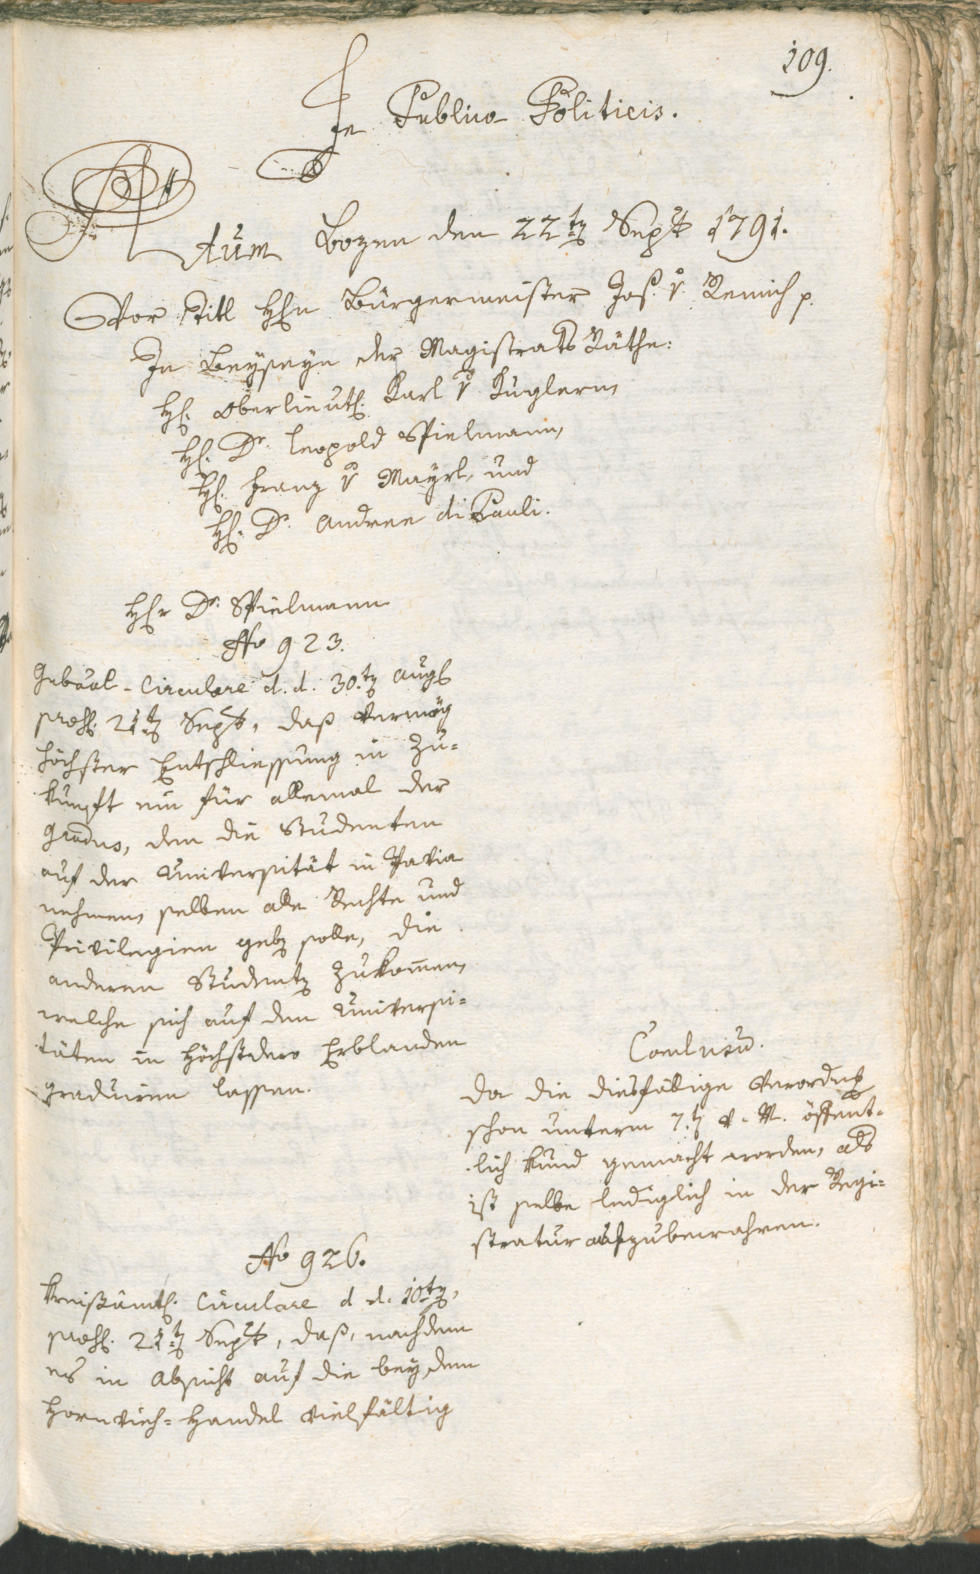 109.
In Publico Politicis.
Actum Bozen den 22ten Septb 1791.
Vor Titl Hhn Bürgermeister Jos. v Remich p.
In Beyseyn der Magistrats Räthe:
H: Oberlieut: Karl v Kuglern,
H: Dr. Leopold Spielmann,
H: Franz v Mayrl, und
H: Dr. Andree di Pauli.
Hhr Dr. Spielmann
No 923.
Gubaal-Circulare d. d. 30.ten Augs
praes: 21ten Septb, daß vermög
höchster Entschliessung in Zu=
kunft ein für allemal der
Gradus, den die Studenten
auf der Universität in Pavia
nehmen, selben alle Rechte und
Privilegien geben solle, die
anderen Studenten zukommen,
welche sich auf den Universi=
täten in höchstdero Erblanden
graduiren lassen.
Conclusum.
Da die diesfällige Verordng
schon unterm 7.ten v. M. öffent=
lich kund gemacht worden, als
ist selbe lediglich in der Regi=
stratur aufzubewahren.
No 926.
Kreisämtl: Circulare d. d. 10ten,
praes: 21ten Septb, daß, nachdem
es in Absicht auf die bey dem
Hornvieh=Handel vielfältig